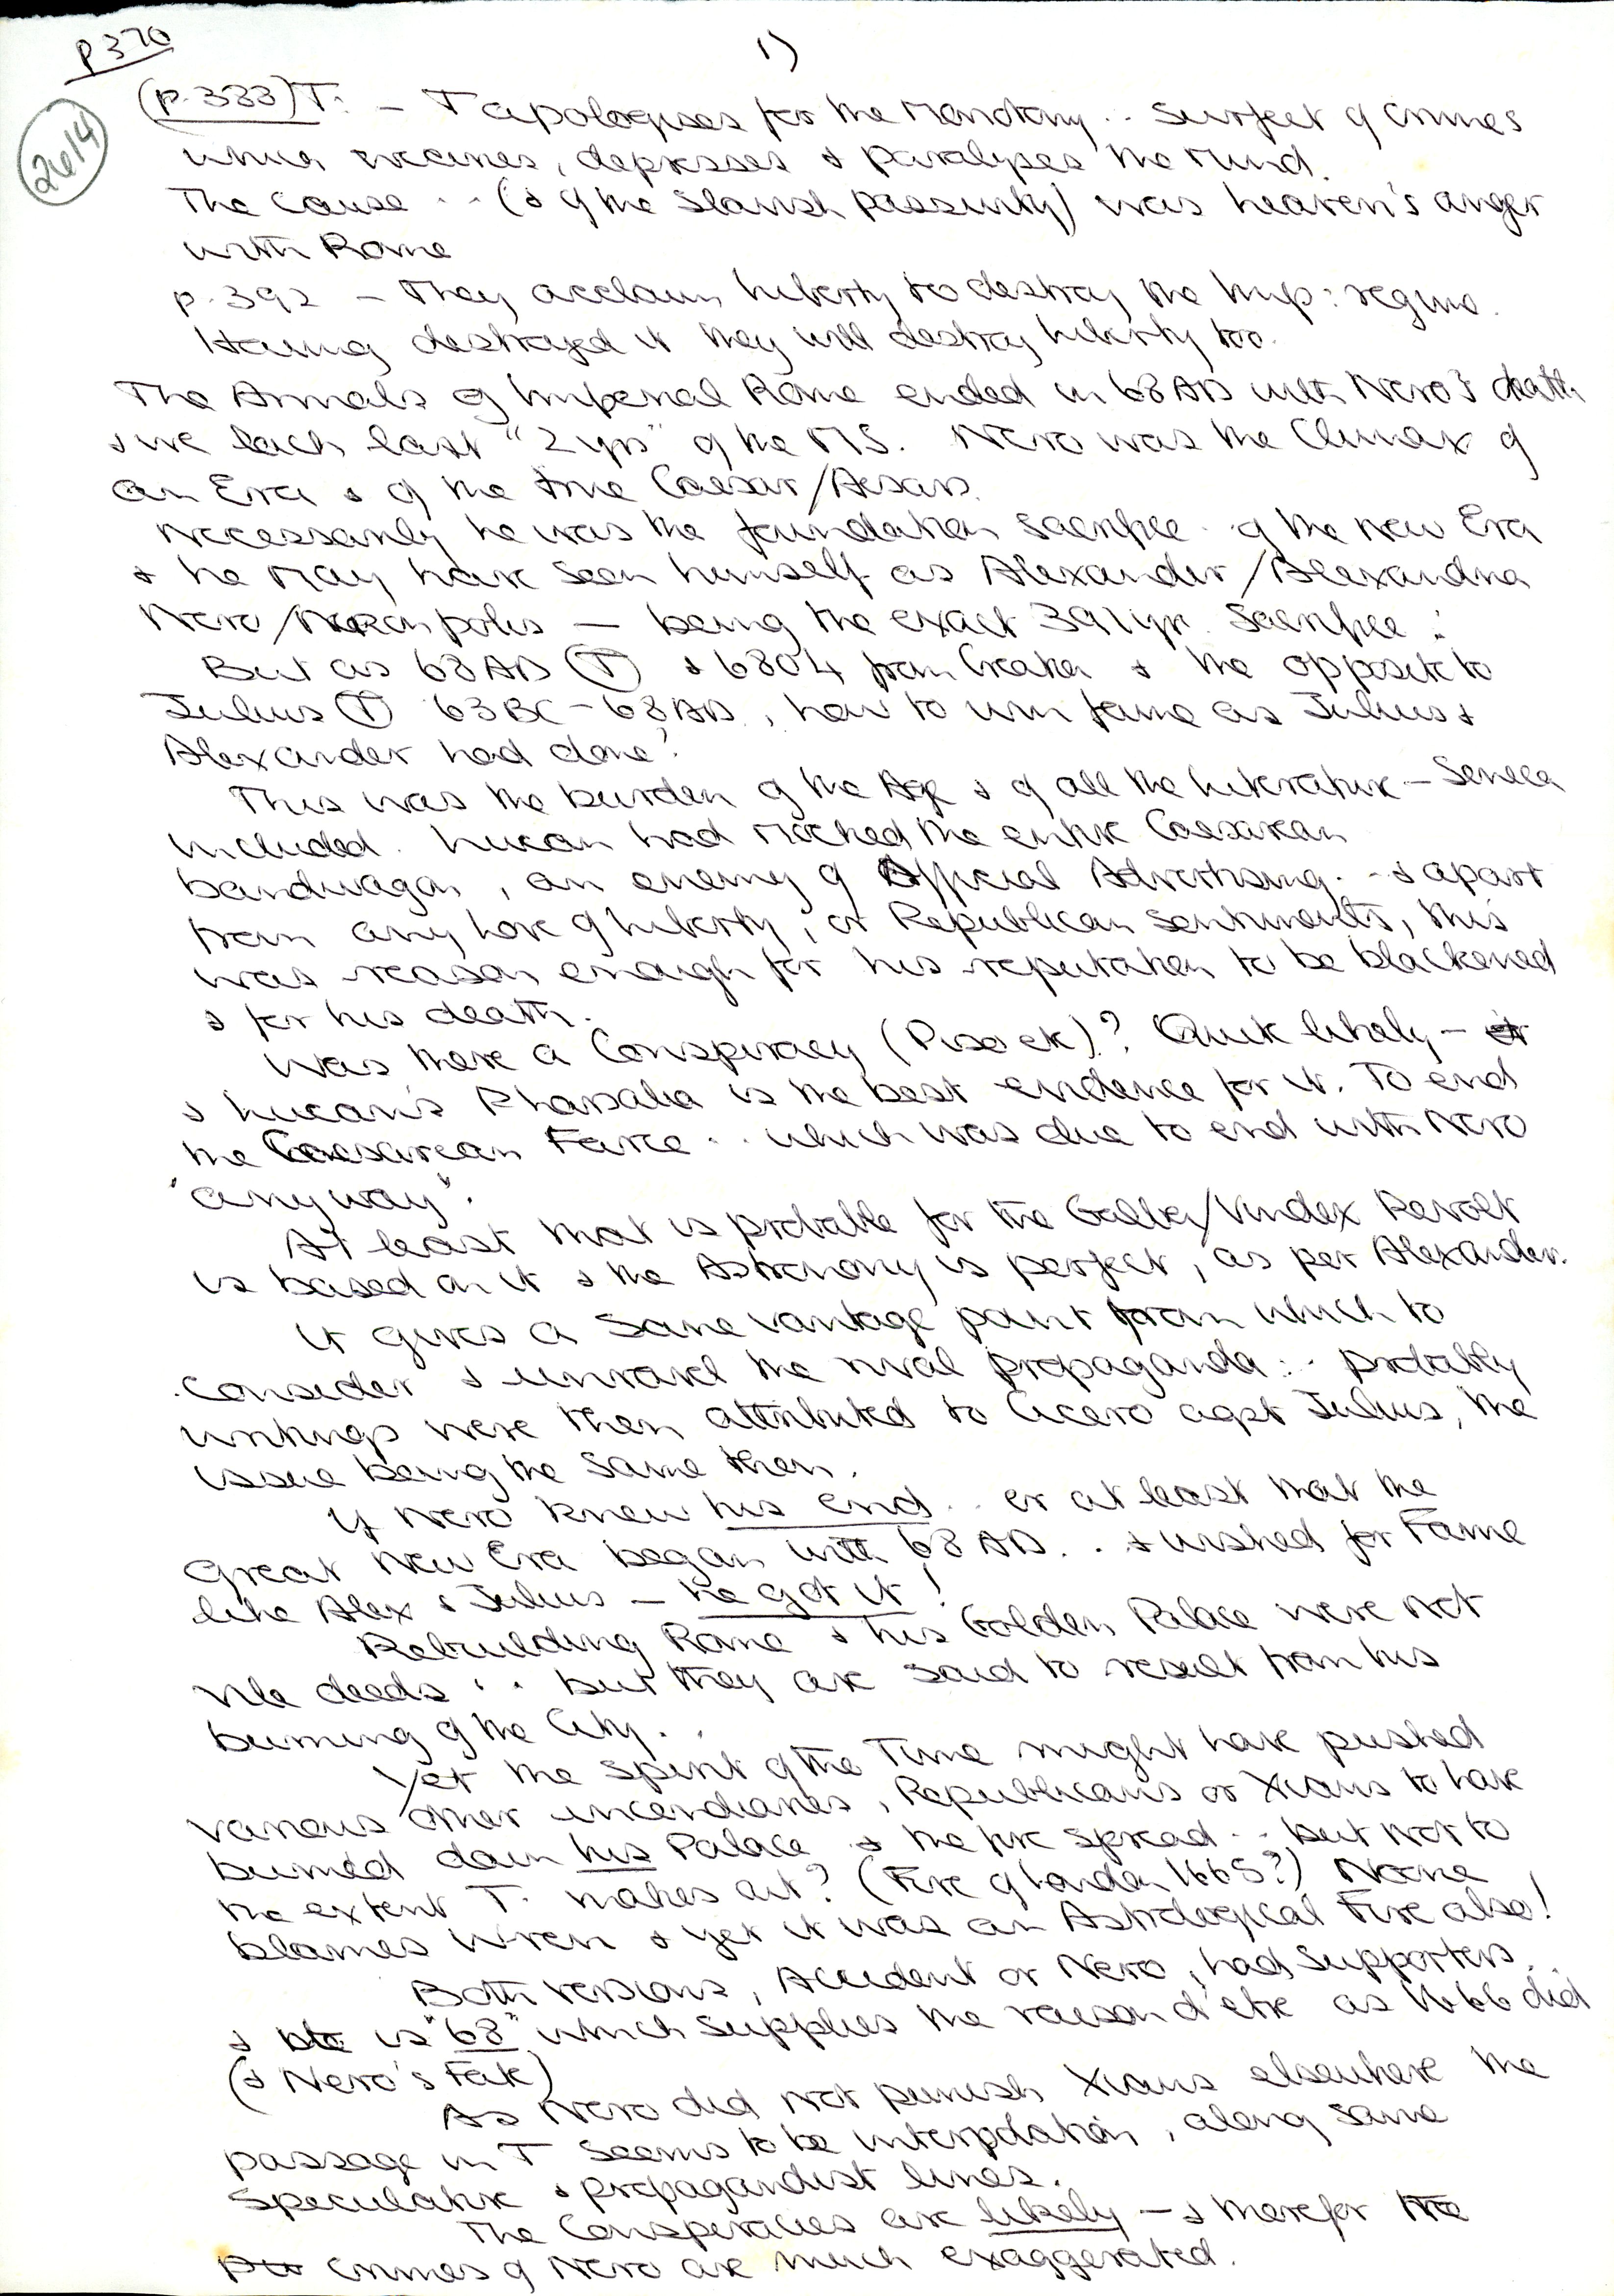 p 370
1)
2614
(p. 383) T. - T apologises for the Monotony .. surfeit of crimes
which wearies, depresses & paralyses the mind.
The Cause .. (& of the Slavish passivity) was heaven's anger
with Rome
p. 392 - They acclaim liberty to destroy the Imp: regime.
Having destroyed it they will destroy liberty too.
The Annals of Imperial Rome ended in 68 AD with Nero's death
& we lack last "2 yrs" of the MS. Nero was the Climax of
an Era & of the true Caesar/Aesars.
Necessarily he was the foundation sacrifice of the New Era
& he May have seen himself as Alexander/Alexandria
Nero/Neronpolis — being the exact 391 yr. Sacrifice :
But as 68 AD (T) & 6804 from Creation & the opposite to
Julius (T) 63 BC - 68 AD, how to win fame as Julius &
Alexander had done?
This was the burden of the Age & of all the literature - Seneca
included. Lucan had Mocked the entire Caesarean
bandwagon, an enemy of Official Advertising. - & apart
from any love of liberty, or Republican sentiments, this
was reason enough for his reputation to be blackened
& for his death.
Was there a Conspiracy (Piso etc)? Quite likely -
& Lucan's Pharsalia is the best evidence for it. To end
the Caesarean Farce .. which was due to end with Nero
"anyway".
At least that is probable for the Galba/Vindex Revolt
is based on it & the Astronomy is perfect, as per Alexander.
It gives a sane vantage point from which to
consider & unravel the rival propaganda :. probably
writings were then attributed to Cicero agst Julius, the
issue being the same then.
If Nero knew his end .. or at least that the
Great New Era began with 68 AD .. & wished for Fame
like Alex & Julius - he got it!
Rebuilding Rome & his Golden Palace were not
vile deeds .. but they are said to result from his
burning of the City ..
Yet the spirit of the Time might have pushed
various other incendiaries, Republicans or Xians to have
burned down his Palace & the fire spread .. but not to
the extent T. makes out? (Fire of London 1665?) Noone
blames Wren & yet it was an Astrological Fire also!
Both versions, Accident or Nero, had supporters.
& is "68" which supplies the raison d'etre as 1666 did
(& Nero's Fate)
As Nero did not punish Xians elsewhere the
passage in T seems to be interpolation, along same
speculative & propagandist lines.
The Conspiracies are likely - & therefor the
crimes of Nero are much exaggerated.